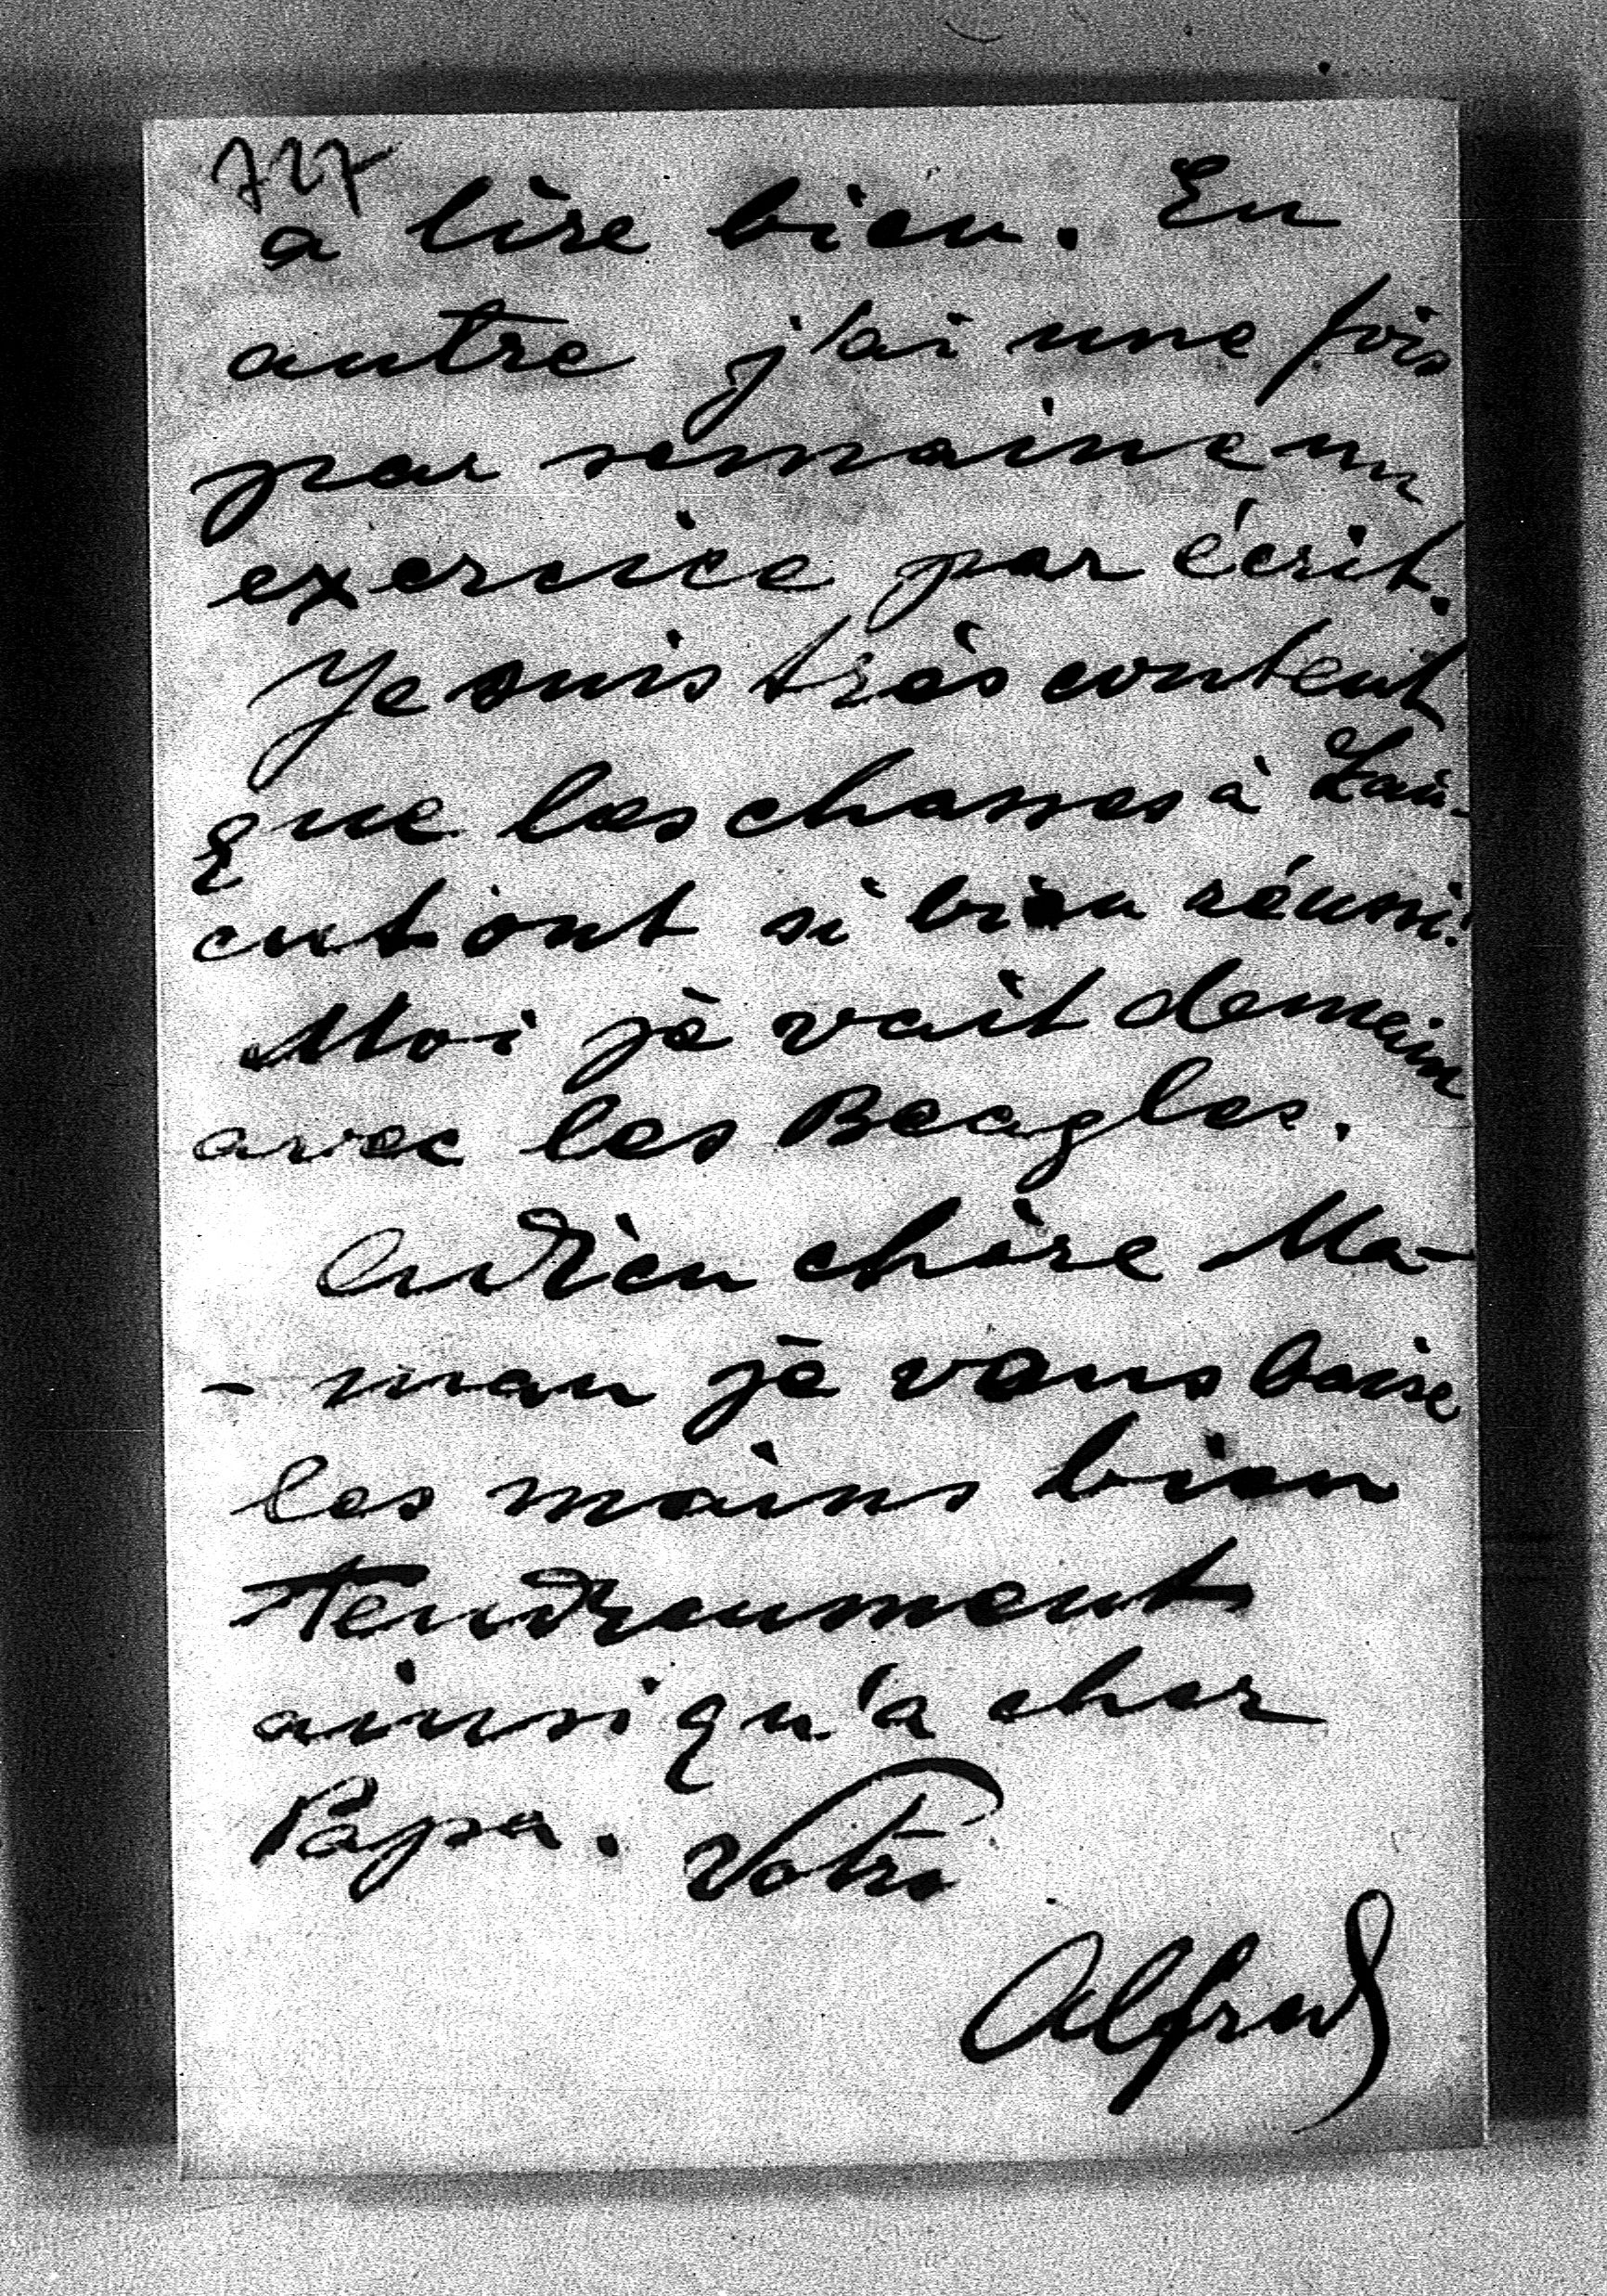 727
a lire bien. En
autre j'ai une fois
par semaine un
exercice par écrit.
Je suis très content
que les chasses à Lan-
cut ont si bien réussi!
Moi je vait demain
avec les Beagles.
Adieu chère Ma-
- man je vous baise
les mains bien
Tendreument
ainsi qu'a cher
Papa. Votre
Alfred